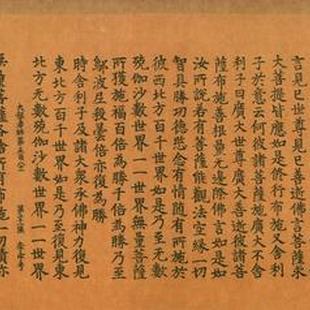 言見已世尊見已善逝佛言菩薩
大菩提皆應如是修行布施又舍利
子於意云何彼諸菩薩施廣大不舍
利子曰廣大世尊廣大善逝彼諸菩
薩布施善根量無邊際佛言如是如
汝所說若有菩薩能觀法空緣一切
智具勝功德愍念有情隨有所施於
彼西北方百千世界如是乃至無數
殑伽沙數世界一一世界無量菩薩
所獲施福百倍為勝千倍為勝乃至
鄔波尼殺曇倍亦復為勝
時舍利子及諸大衆承佛神力復見
東北方百千世界如是乃至復見東
北方無數殑伽沙數世界一一世界
無量菩薩各捨所有布施一切貧